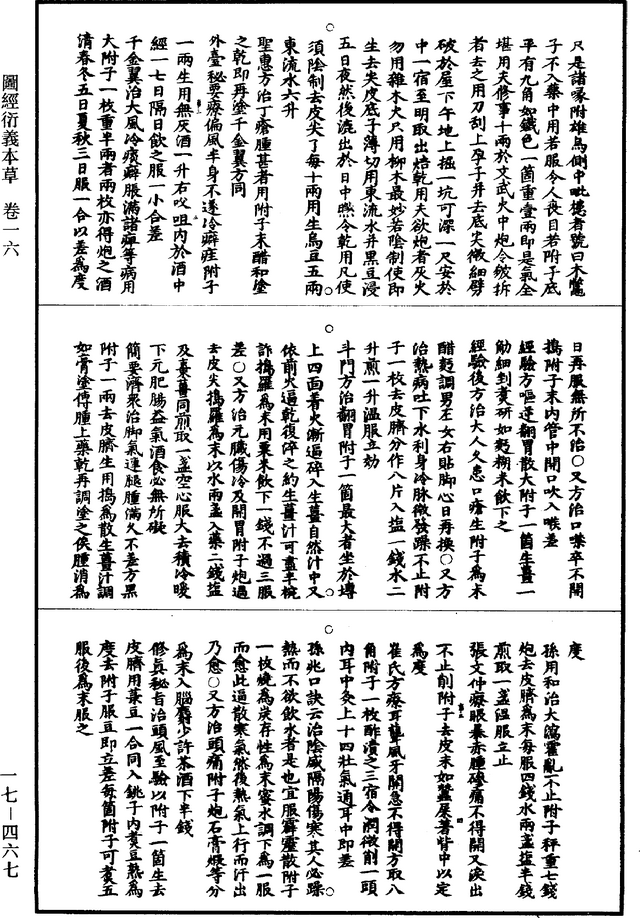 圖經衍義本草　卷一六
一七－四六七
只是諸喙附雄烏側中毗槵者號曰木鱉
子不入藥中用若服令人喪目若附子底
平有九角如鐵色一箇重壹兩即是氣全
堪用夫修事十兩於文武火中炮令皴拆
者去之用刀刮上孕子并去底尖微細劈
破於屋下午地上掘一坑可深一尺安於
中一宿至明取出焙乾用夫欲炮者灰火
勿用雜木火只用柳木最妙若陰制使即
生去尖皮底子薄切用東流水并黑豆浸
五日夜然後漉出於日中㬠令乾用凡使
須陰制去皮尖了每十兩用生烏豆五兩
東流水六升
聖惠方治丁瘡腫甚者用附子末醋和塗
之乾即再塗千金翼方同
外臺秘要療偏風半身不遂冷癖疰附子
一兩生用無灰酒一升右㕮咀內於酒中
經一七日隔日飲之服一小合差
千金翼治大風冷痰癖脹滿諸痺等病用
大附子一枚重半兩者兩枚亦得炮之酒
漬春冬五日夏秋三日服一合以差為度
日再服無所不治○又方治口噤卒不開
搗附子末內管中開口吹入喉差
經驗方嘔逆翻胃散大附子一箇生薑一
觔細剉煮研如麪糊米飲下之
經驗後方治大人久患口瘡生附子為末
醋麪調男左女右貼脚心日再換○又方
治熱病吐下水利身冷脉微發躁不止附
子一枚去皮臍分作八片入鹽一錢水二
升煎一升溫服立効
斗門方治翻胃附子一箇最大者坐於塼
上四面着火漸逼碎入生薑自然汁中又
依前火逼乾復淬之約生薑汁可盡半椀
許搗羅為末用粟米飲下一錢不過三服
差○又方治元臟傷冷及開胃附子炮過
去皮尖搗羅為末以水兩盞入藥二錢鹽
及棗薑同煎取一盞空心服大去積冷暖
下元肥腸益氣酒食必無所礙
簡要濟衆治脚氣連腿腫滿久不差方黑
附子一兩去皮臍生用搗為散生薑汁調
如膏塗傅腫上藥乾再調塗之俟腫消為
度
孫用和治大瀉霍亂不止附子秤重七錢
炮去皮臍為末每服四錢水兩盞鹽半錢
煎取一盞溫服立止
張文仲療眼暴赤腫磣痛不得開又淚出
不止削附子去皮末如蠶屎著眥中以定
為度
崔氏方療耳聾風牙關急不得開方取八
角附子一枚酢漬之三宿令潤微削一頭
內耳中灸上十四壯氣通耳中即差
孫兆口訣云治陰盛隔陽傷寒其人必躁
熱而不欲飲水者是也宜服霹靂散附子
一枚燒為炭存性為末蜜水調下為一服
而愈此逼散寒氣然後熱氣上行而汗出
乃愈○又方治頭痛附子炮石膏煅等分
為末入腦麝少許茶酒下半錢
修真秘旨治頭風至驗以附子一箇生去
皮臍用菉豆一合同入銚子內煮豆熟為
度去附子服豆即立差每箇附子可煮五
服後為末服之